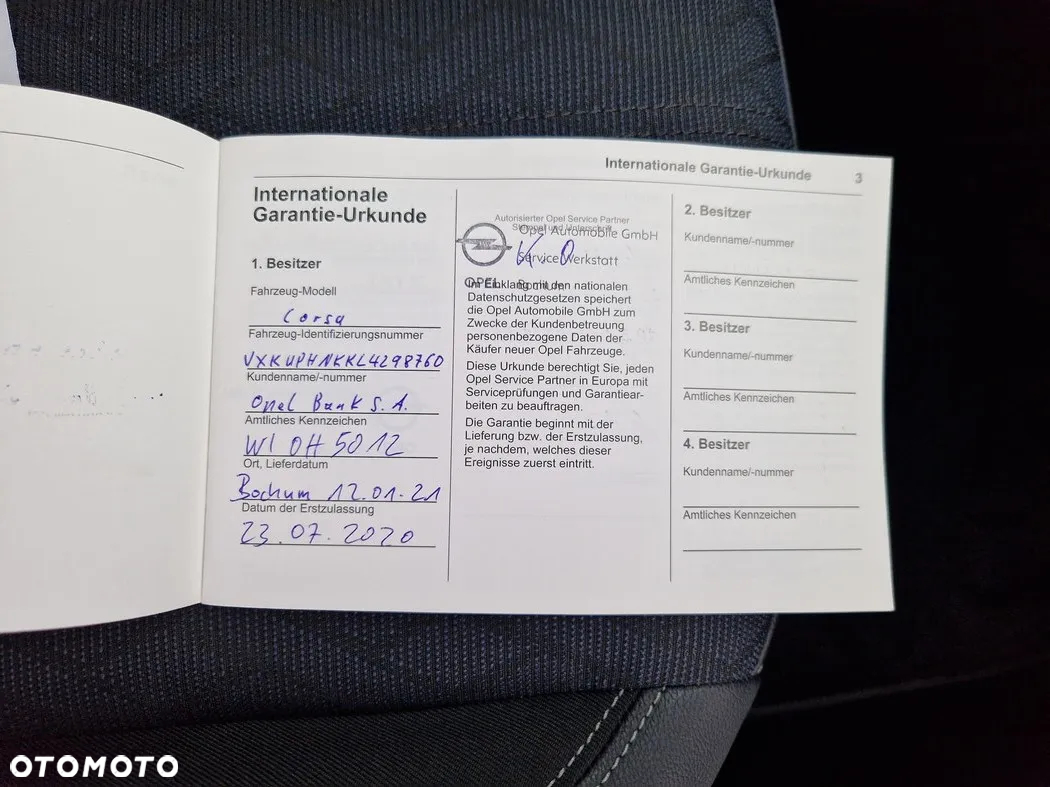 Internationale Garantie-Urkunde 3
Internationale
Garantie-Urkunde
1. Besitzer
Fahrzeug-Modell
Corsa
Fahrzeug-Identifizierungsnummer
VXKUPHNKKL4298760
Kundenname/-nummer
Opel Bank S.A.
Amtliches Kennzeichen
WI OH 5012
Ort, Lieferdatum
Bochum 12.01.21
Datum der Erstzulassung
23.07.2020
Autorisierter Opel Service Partner
Stempel und Unterschrift
Opel Automobile GmbH
Service Werkstatt
OPEL Bochum
Im Einklang mit den nationalen
Datenschutzgesetzen speichert
die Opel Automobile GmbH zum
Zwecke der Kundenbetreuung
personenbezogene Daten der
Käufer neuer Opel Fahrzeuge.
Diese Urkunde berechtigt Sie, jeden
Opel Service Partner in Europa mit
Serviceprüfungen und Garantiear-
beiten zu beauftragen.
Die Garantie beginnt mit der
Lieferung bzw. der Erstzulassung,
je nachdem, welches dieser
Ereignisse zuerst eintritt.
2. Besitzer
Kundenname/-nummer
Amtliches Kennzeichen
3. Besitzer
Kundenname/-nummer
Amtliches Kennzeichen
4. Besitzer
Kundenname/-nummer
Amtliches Kennzeichen
OTOMOTO